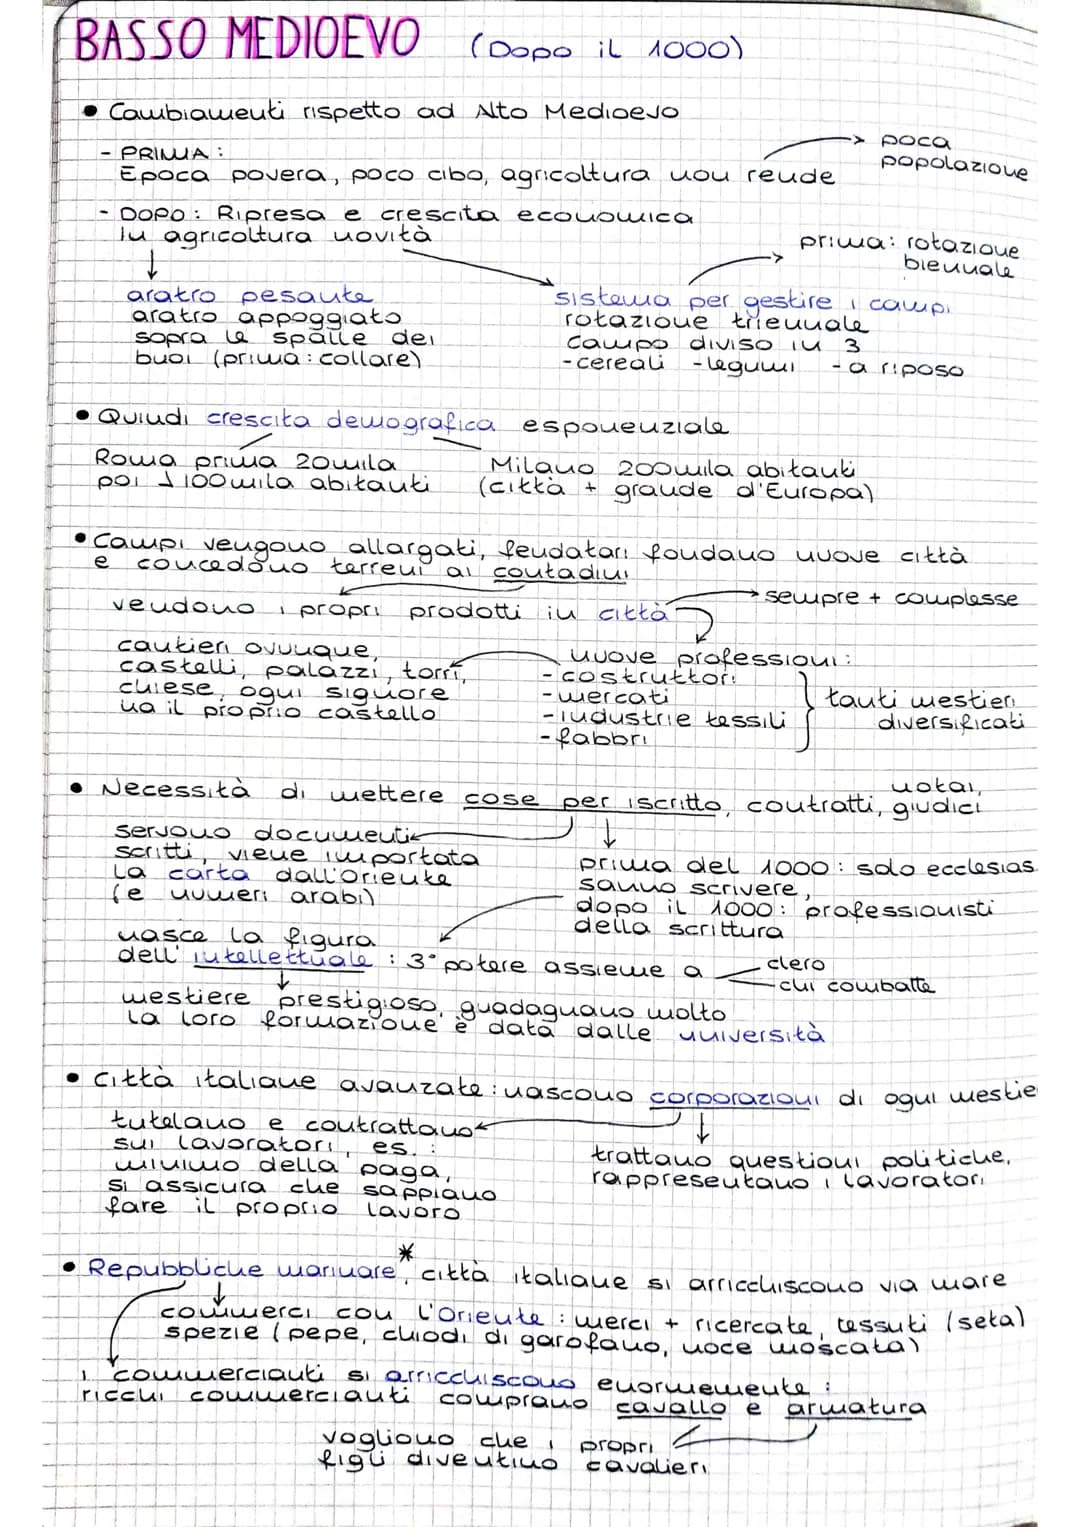 BASSO MEDIOEVO (Dopo il 1000)
• Cambiamenti rispetto ad Alto Medioevo
- PRIMA :
→ poca
popolazione
Epoca povera, poco cibo, agricoltura non rende
- DOPO : Ripresa e crescita economica
In agricoltura novità
prima: rotazione
biennale
aratro pesante
aratro appoggiato
sopra le spalle dei
buoi (prima: collare)
sistema per gestire i campi
rotazione triennale
campo diviso in 3
-cereali -legumi -a riposo
• Quindi crescita demografica esponenziale
Roma prima 20mila
poi 100mila abitanti
Milano 200mila abitanti
(città + grande d'Europa)
• Campi vengono allargati, feudatari fondano nuove città
e concedono terreni ai contadini
vendono i propri prodotti in città
→ sempre + complesse
cantieri ovunque,
castelli, palazzi, torri,
chiese, ogni signore
ha il proprio castello
nuove professioni:
-costruttori
-mercati
-industrie tessili
-fabbri
tanti mestieri
diversificati
• Necessità di mettere cose per iscritto, contratti, giudici
notai,
servono documenti
scritti, viene importata
la carta dall'Oriente
(e numeri arabi)
prima del 1000: solo ecclesias
sanno scrivere,
dopo il 1000: professionisti
della scrittura
nasce la figura
dell'intellettuale : 3° potere assieme a
clero
chi combatte
mestiere prestigioso, guadagnano molto
la loro formazione è data dalle università
• Città italiane avanzate: nascono corporazioni di ogni mestie
tutelano e contrattano
sui lavoratori, es. :
minimo della paga,
si assicura che sappiano
fare il proprio lavoro
trattano questioni politiche,
rappresentano i lavoratori
*
• Repubbliche marinare, città italiane si arricchiscono via mare
commerci con l'Oriente : merci + ricercate, tessuti (seta)
spezie (pepe, chiodi di garofano, noce moscata)
i commercianti si arricchiscono enormemente :
ricchi commercianti comprano cavallo e armatura
vogliono che i propri
figli diventino cavalieri